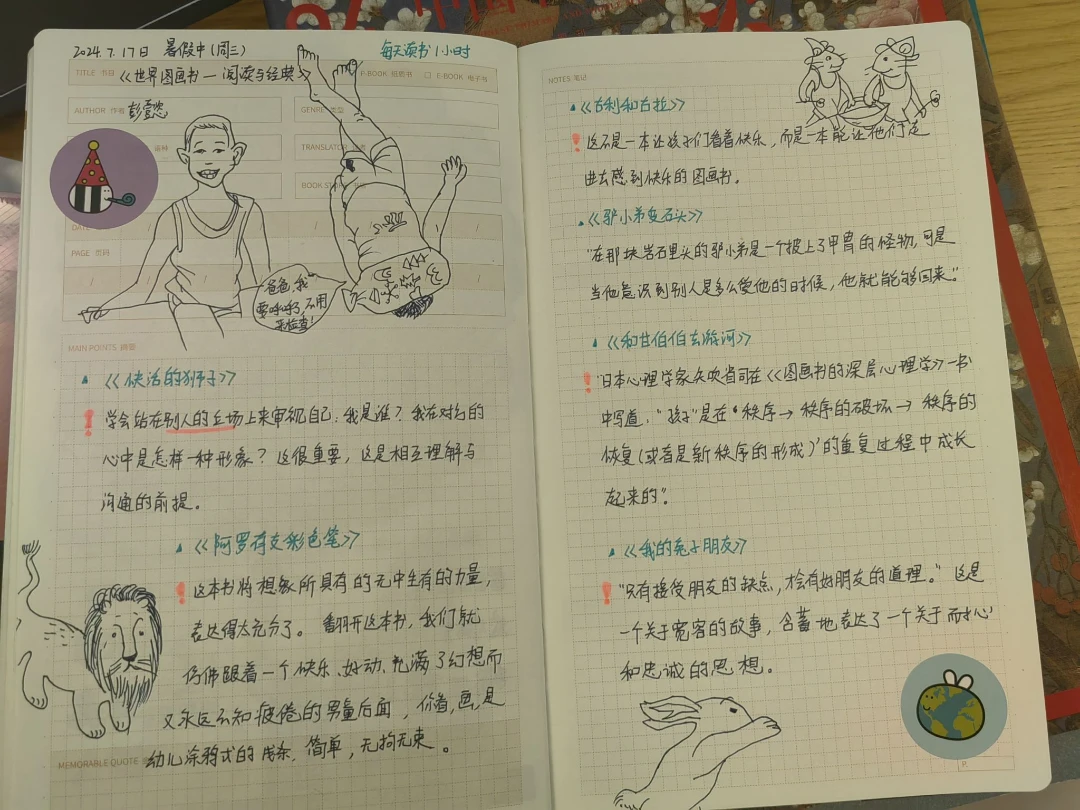 2024.7.17日 暑假中(周三) 每天读书1小时
TITLE 书目 《世界图画书—阅读与经典》
E-BOOK 纸质书 □ E-BOOK 电子书
AUTHOR 作者 彭懿
GENRE 类型
语种
TRANSLATOR
BOOK STORE
DATE
PAGE 页码
爸爸,我
要嘘嘘了,不用
来检查!
MAIN POINTS 摘要
《快活的狮子》
学会站在别人的立场上来审视自己:我是谁?我在对方的
心中是怎样一种形象?这很重要,这是相互理解与
沟通的前提。
《阿罗有支彩色笔》
这本书将想象所具有的无中生有的力量,
表达得太充分了。翻开这本书,我们就
仿佛跟着一个快乐、好动、充满了幻想而
又永远不知疲倦的男童后面,你看,画,是
幼儿涂鸦式的线条,简单,无拘无束。
MEMORABLE QUOTE
NOTES 笔记
《古利和古拉》
这不是一本让孩子们看着快乐,而是一本能让他们走
进去感到快乐的图画书。
《驴小弟变石头》
“在那块岩石里头的驴小弟是一个披上了甲胄的怪物,可是
当他意识到别人是多么爱他的时候,他就能够回来。”
《和甘伯伯去游河》
日本心理学家矢吹省司在《图画书的深层心理学》一书
中写道:“孩子”是在‘秩序→秩序的破坏→秩序的
恢复(或者是新秩序的形成)’的重复过程中成长
起来的”。
《我的兔子朋友》
“只有接受朋友的缺点,才会有好朋友的道理。”这是
一个关于宽容的故事,含蓄地表达了一个关于耐心
和忠诚的思想。